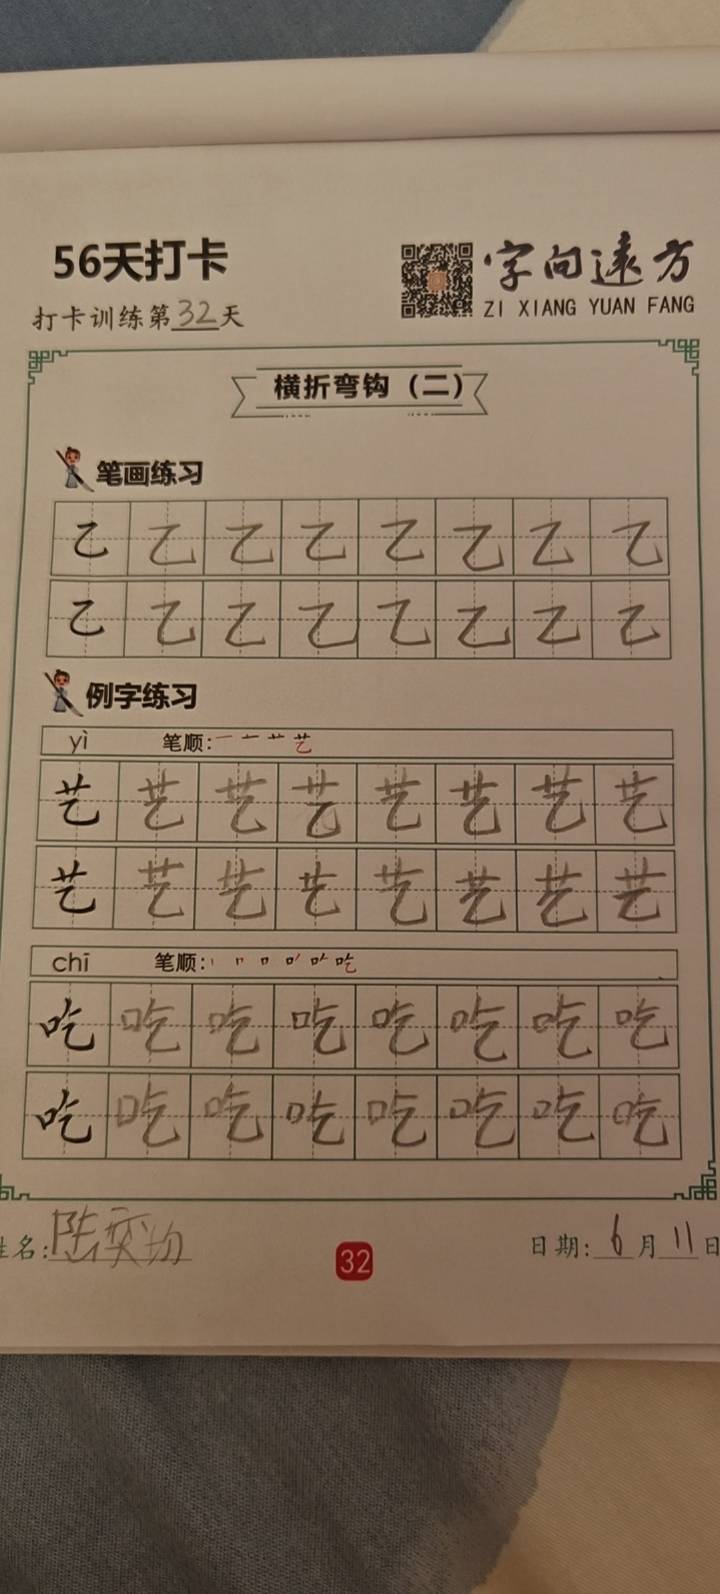 56天打卡
字向远方
ZI XIANG YUAN FANG
打卡训练第32天
横折弯钩（二）
笔画练习
乙 乙 乙 乙 乙 乙 乙 乙
乙 乙 乙 乙 乙 乙 乙 乙
例字练习
yì 笔顺: 一 艺
艺 艺 艺 艺 艺 艺 艺 艺
艺 艺 艺 艺 艺 艺 艺 艺
chī 笔顺: 丨 口 吃
吃 吃 吃 吃 吃 吃 吃 吃
吃 吃 吃 吃 吃 吃 吃 吃
姓名: 陈奕均
32
日期: 6月11日